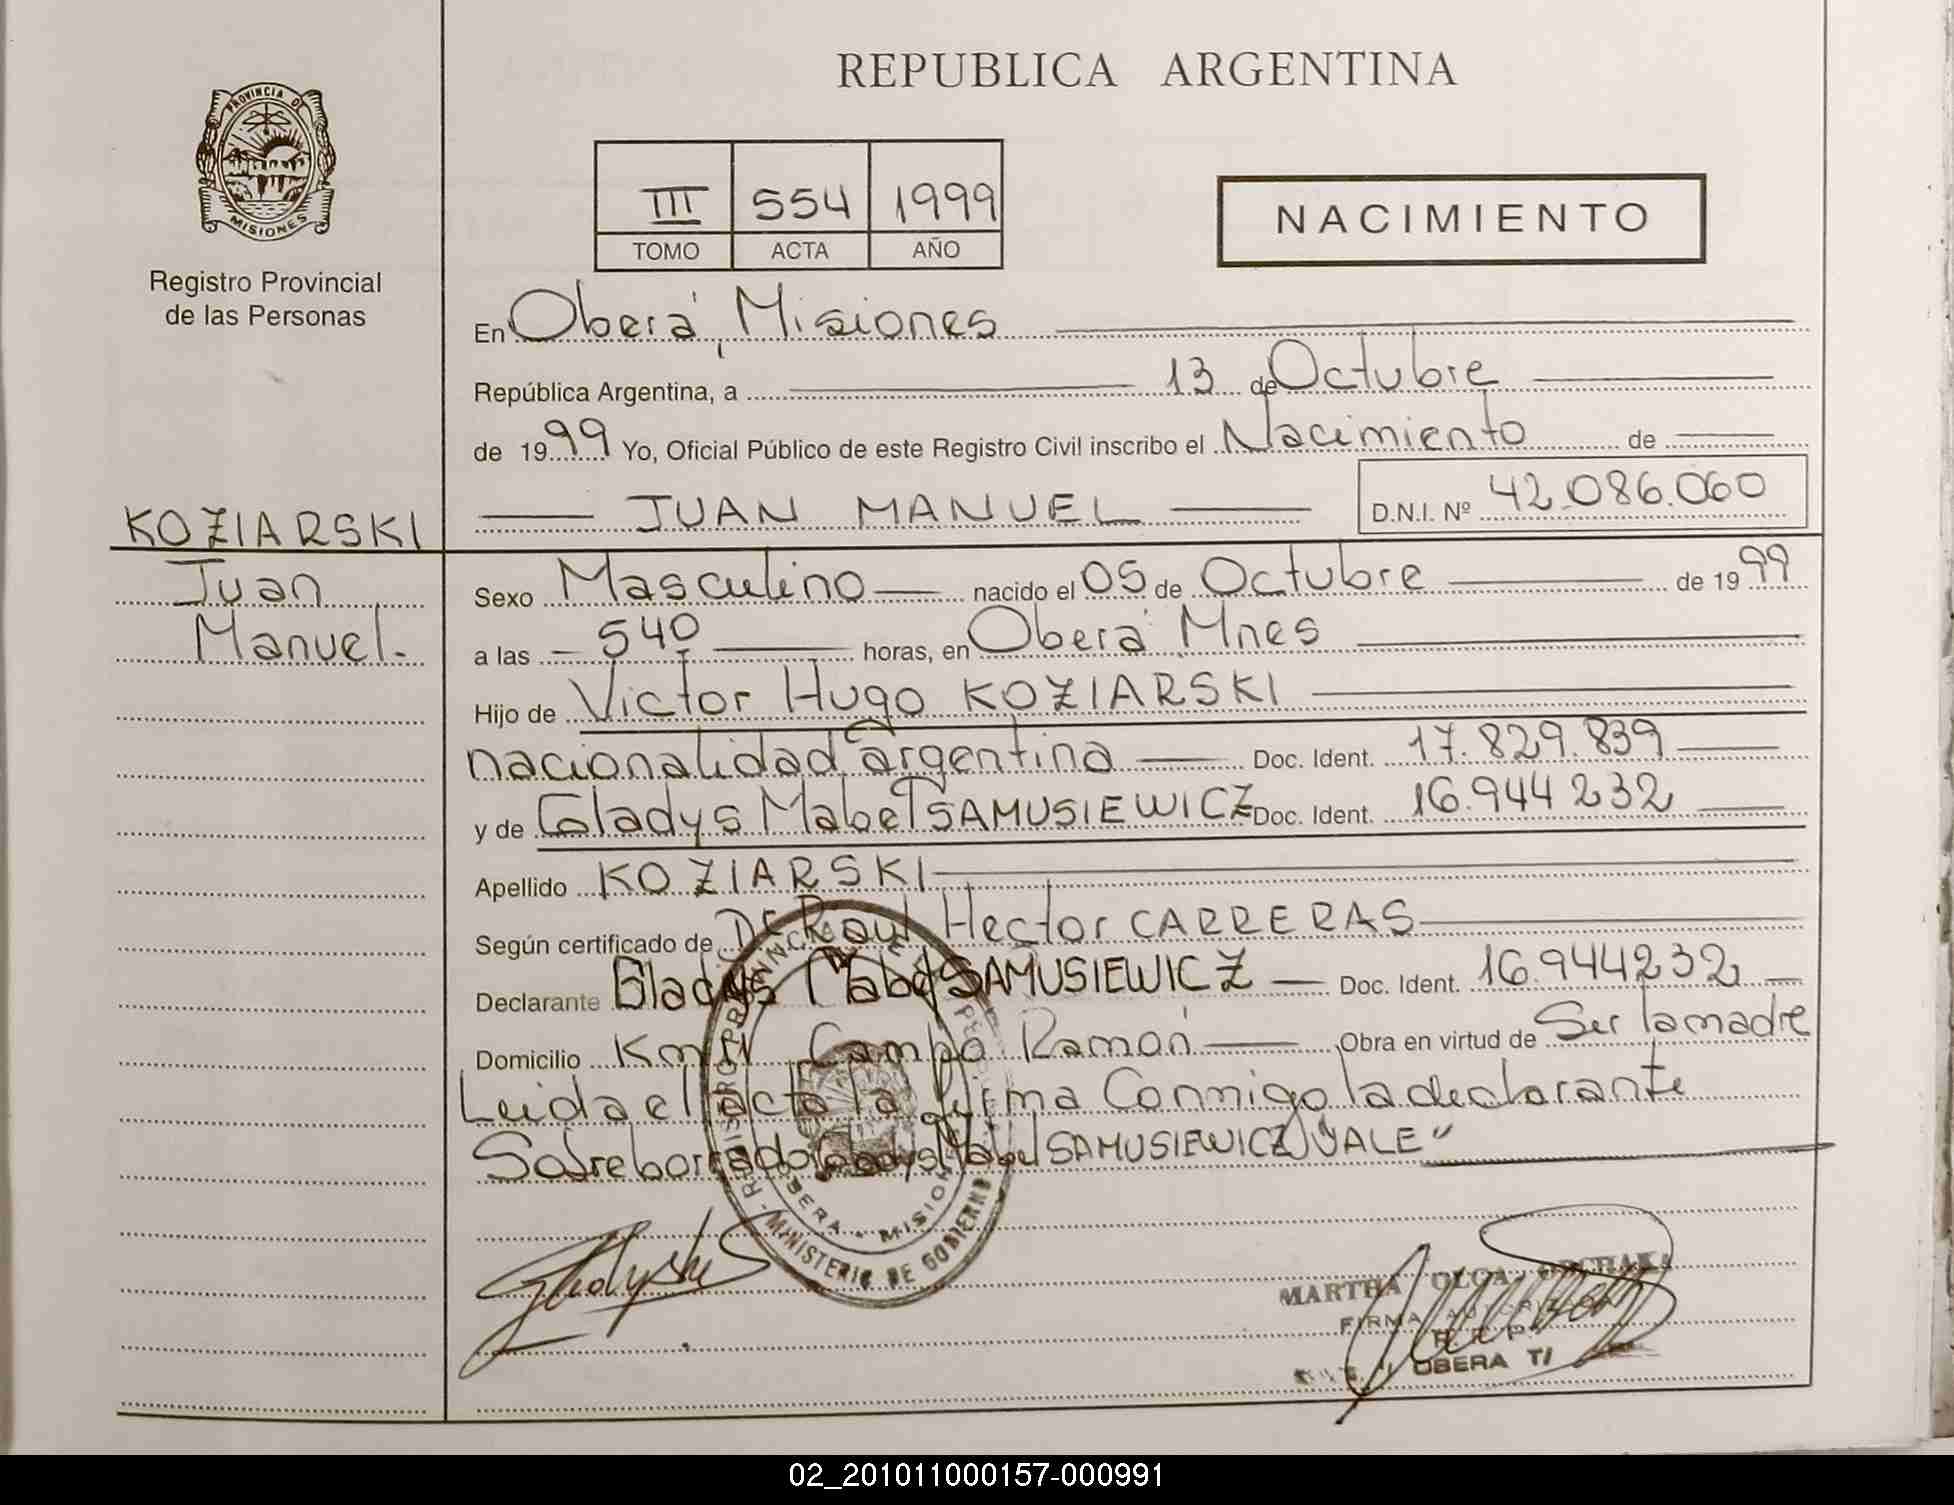 REPUBLICA ARGENTINA
PROVINCIA DE
MISIONES
Registro Provincial
de las Personas
III 554 1999
TOMO ACTA AÑO
NACIMIENTO
En Oberá, Misiones
República Argentina, a 13 de Octubre
de 1999 Yo, Oficial Público de este Registro Civil inscribo el Nacimiento de
JUAN MANUEL D.N.I. Nº 42.086.060
KOZIARSKI
Juan
Manuel.
Sexo Masculino nacido el 05 de Octubre de 1999
a las 540 horas, en Oberá Mnes
Hijo de Victor Hugo KOZIARSKI
nacionalidad argentina Doc. Ident. 17.829.839
y de Gladys Mabel SAMUSIEWICZ Doc. Ident. 16.944232
Apellido KOZIARSKI
Según certificado de Dr Raul Hector CARRERAS
Declarante Gladys Mabel SAMUSIEWICZ Doc. Ident. 16.944232
Domicilio Km Campo Ramón Obra en virtud de Ser la madre
Leida el acta la firma Conmigo la declarante
Sobreborrado Gladys Mabel SAMUSIEWICZ VALE"
OBERA - MISIONES
MINISTERIO DE GOBIERNO
MARTHA OLGA
FIRMA AUTORIZADA
R.R.P.
OBERA
02_201011000157-000991